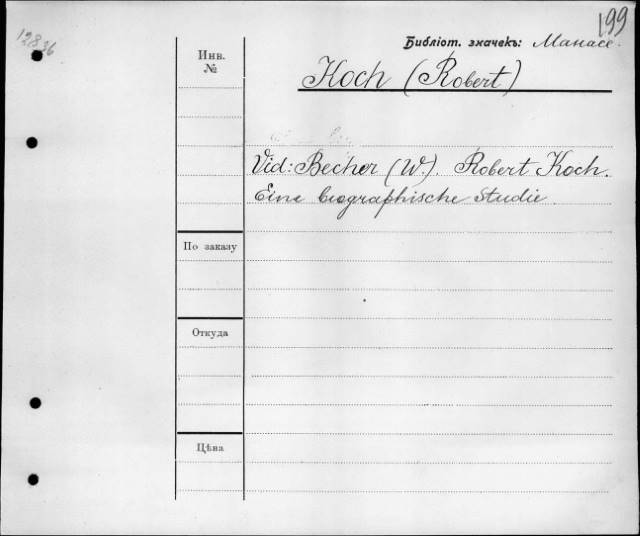 199
12836
Библіот. значекъ: Манасе.
Инв.
№
Koch (Robert)
Vid: Becher (W.). Robert Koch.
Eine biographische Studie
По заказу
Откуда
Цѣна